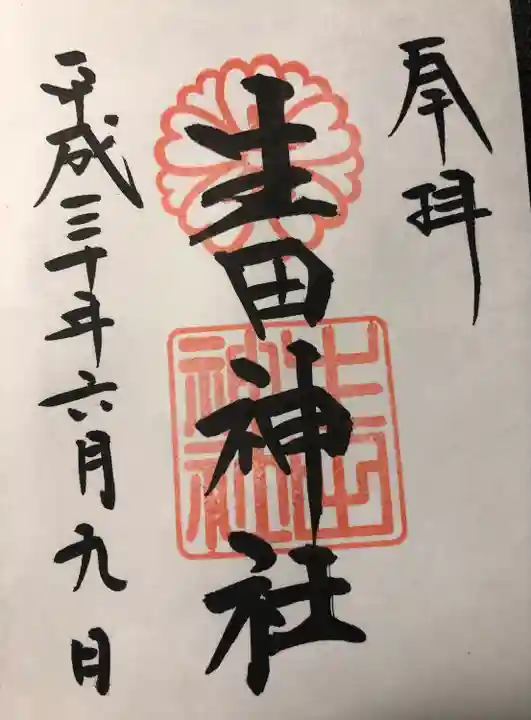 奉拝
生田神社
生田神社
平成三十年六月九日